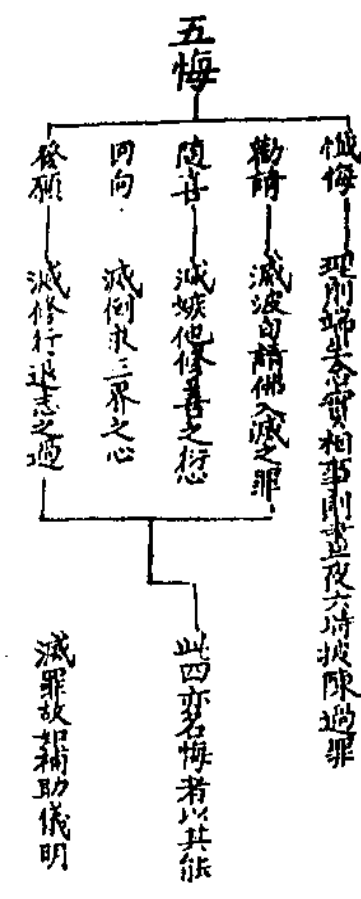 五悔
懺悔 理則端坐念實相事則晝夜六時披陳過罪
勸請 滅波旬請佛入滅之罪
隨喜 滅嫉他修善之愆
回向 滅倒求三界之心
發願 滅修行退志之過
此四亦名悔者以其能
滅罪故如補助儀明